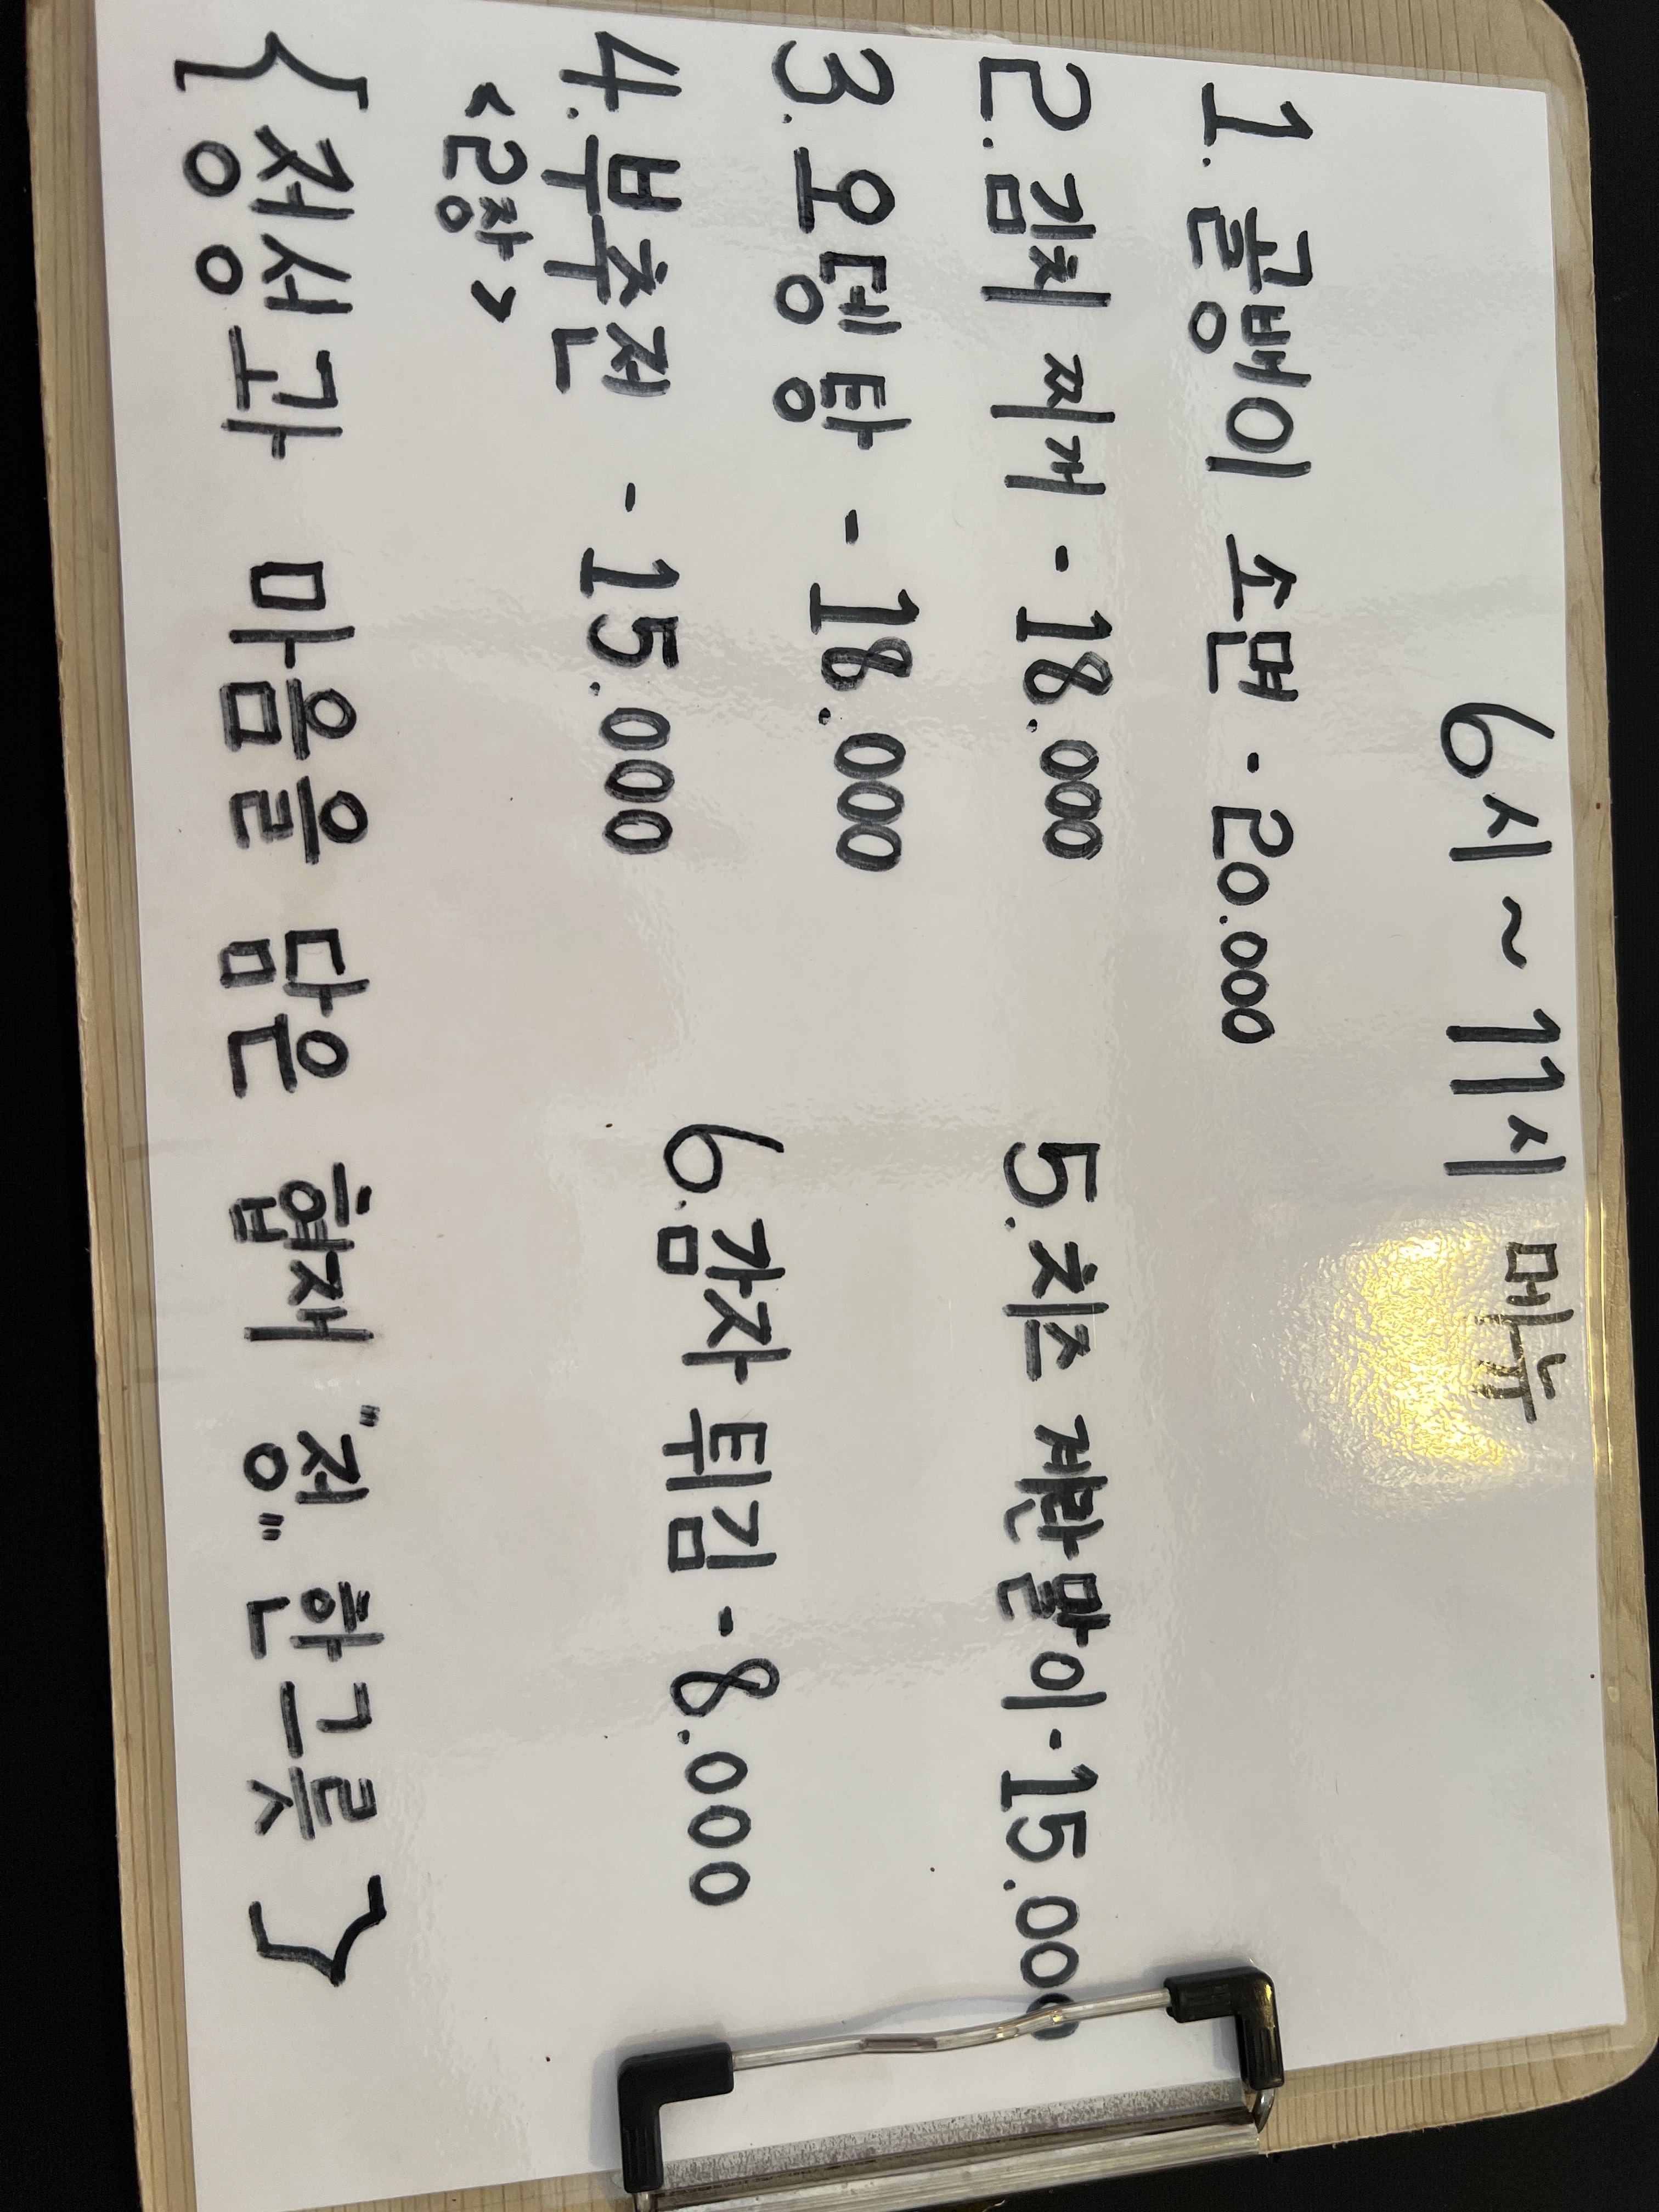 6시~11시 메뉴
1. 골뱅이 소면 - 20.000
2. 김치 찌개 - 18.000
3. 오뎅탕 - 18.000
4. 부추전 - 15.000
<2장>
5. 치즈 계란말이 - 15.000
6. 감자 튀김 - 8.000
{정성과 마음을 담은 협재 "정" 한그릇}